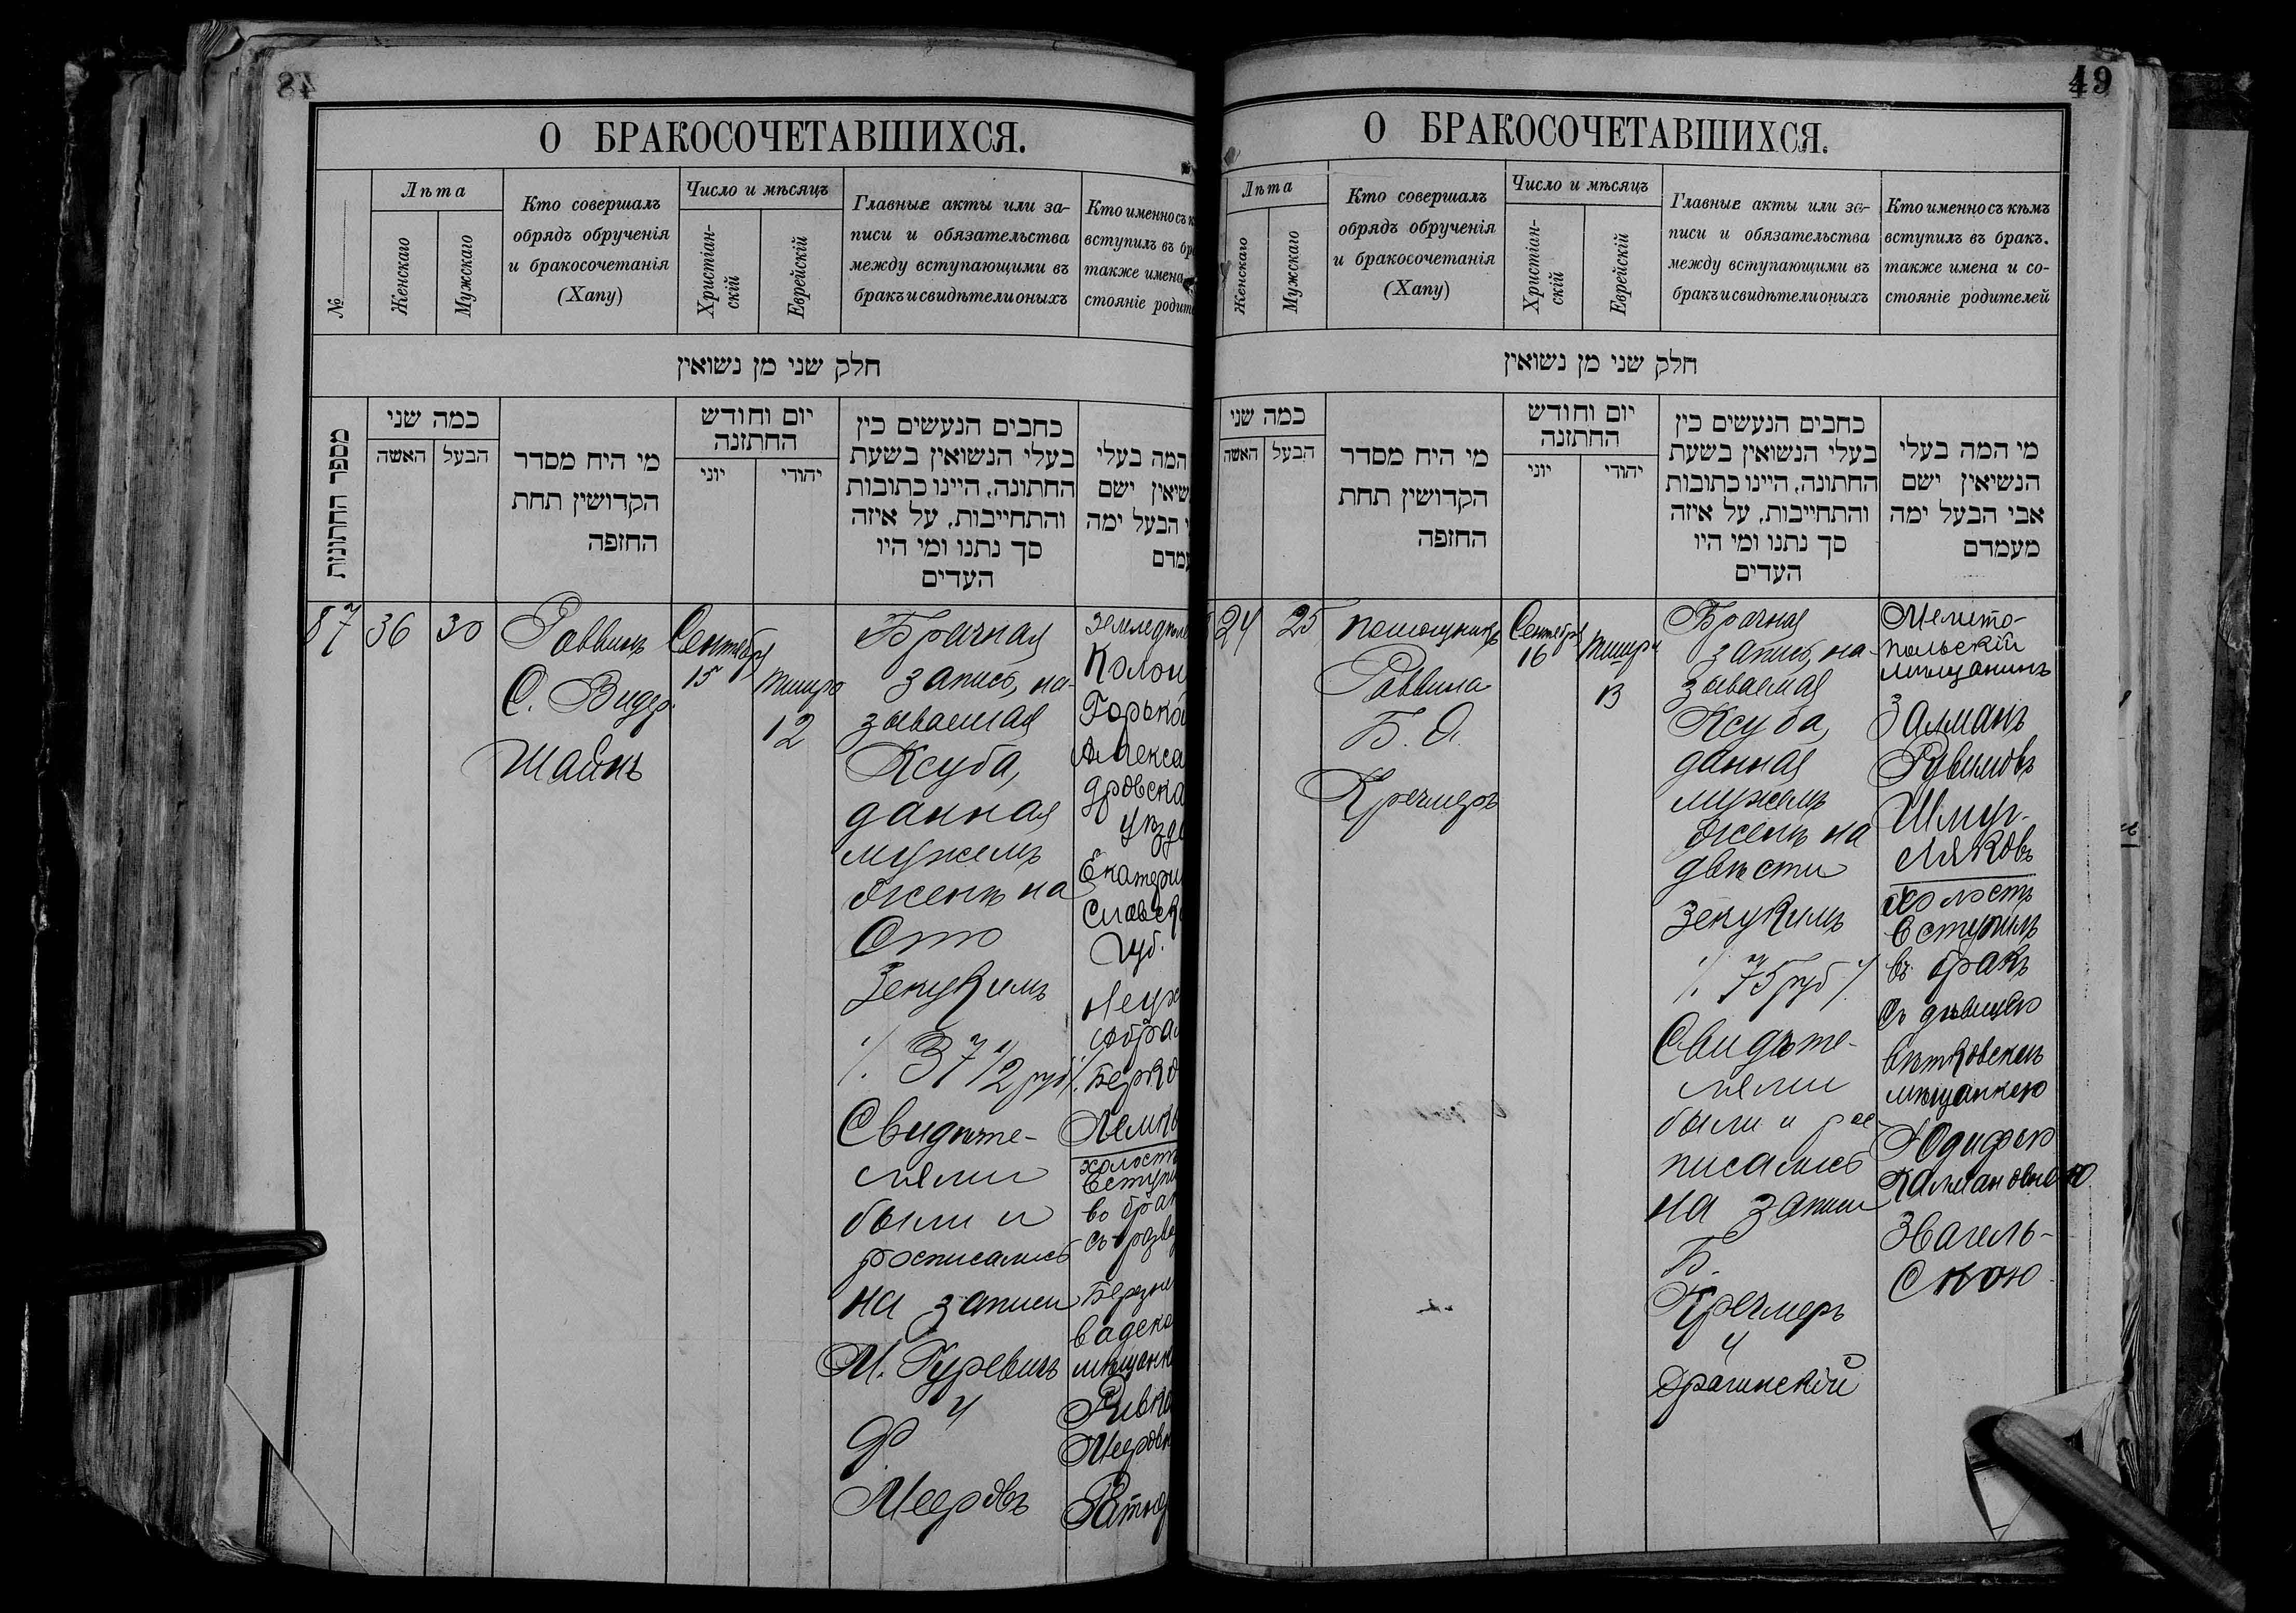 48
О БРАКОСОЧЕТАВШИХСЯ.
№
Лѣта
Женскаго
Мужскаго
Кто совершалъ
обрядъ обрученія
и бракосочетанія
(Хапу)
Число и мѣсяцъ
Христіан-
скій
Еврейскій
Главные акты или за-
писи и обязательства
между вступающими въ
бракъ и свидѣтели оныхъ
Кто именно съ к
вступилъ въ бр
также имена
стояніе родит
חלק שני מן נשואין
מספר החתונות
כמה שני
האשה
הבעל
מי היח מסדר
הקדושין תחת
החזפה
יום וחודש
החתזנה
יוני
יהודי
כחבים הנעשים כין
בעלי הנשואין בשעת
החתונה, היינו כתובות
והתחייבות, על איזה
סך נתנו ומי היו
העדים
המה בעלי
שיאין ישם
י הבעל ימה
עמדם
87
36
30
Раввинъ
С. Видер
Шайнъ
Сентябр
15
Тишри
12
Брачная
запись, на-
зываемая
Ксуба,
данная
мужемъ
женѣ на
Сто
Зекукимъ
/. 37 1/2 руб/.
Свидѣте-
лями
были и
росписались
на записи
М. Гуревичъ
и
Ф.
Мееровъ
Колон
Горько
Алекса
дровска
уѣзд
Екатери
Славск
Губ.
Абра
Берко
Лемк
холостъ
вступи
во брак
съ разве
мѣщанк
Ривко
Мееровн
49
О БРАКОСОЧЕТАВШИХСЯ.
Лѣта
Женскаго
Мужскаго
Кто совершалъ
обрядъ обрученія
и бракосочетанія
(Хапу)
Число и мѣсяцъ
Христіан-
скій
Еврейскій
Главные акты или за-
писи и обязательства
между вступающими въ
бракъ и свидѣтели оныхъ
Кто именно съ кѣмъ
вступилъ въ бракъ.
также имена и со-
стояніе родителей
חלק שני מן נשואין
כמה שני
האשה
הבעל
מי היח מסדר
הקדושין תחת
החזפה
יום וחודש
החתזנה
יוני
יהודי
כחבים הנעשים כין
בעלי הנשואין בשעת
החתונה, היינו כתובות
והתחייבות, על איזה
סך נתנו ומי היו
העדים
מי המה בעלי
הנשיאין ישם
אבי הבעל ימה
מעמדם
24
25
Помощникъ
Раввина
Б. А.
Кречмеръ
Сентябр
16
Тишри
13
Брачная
запись, на-
зываемая
Ксуба,
данная
мужемъ
женѣ на
двѣсти
Зекукимъ
/. 75 руб /.
Свидѣте-
лями
были и рос-
писались
на записи
Б.
Кречмеръ
и
Драгинскій
Мелито-
польскій
мѣщанинъ
Залманъ
Рувимовъ
Шмуг-
ляковъ
холостъ
вступилъ
въ бракъ
съ дѣвицею
вѣтковскою
мѣщанкою
Юдифью
Калмановною
Звагель-
скою